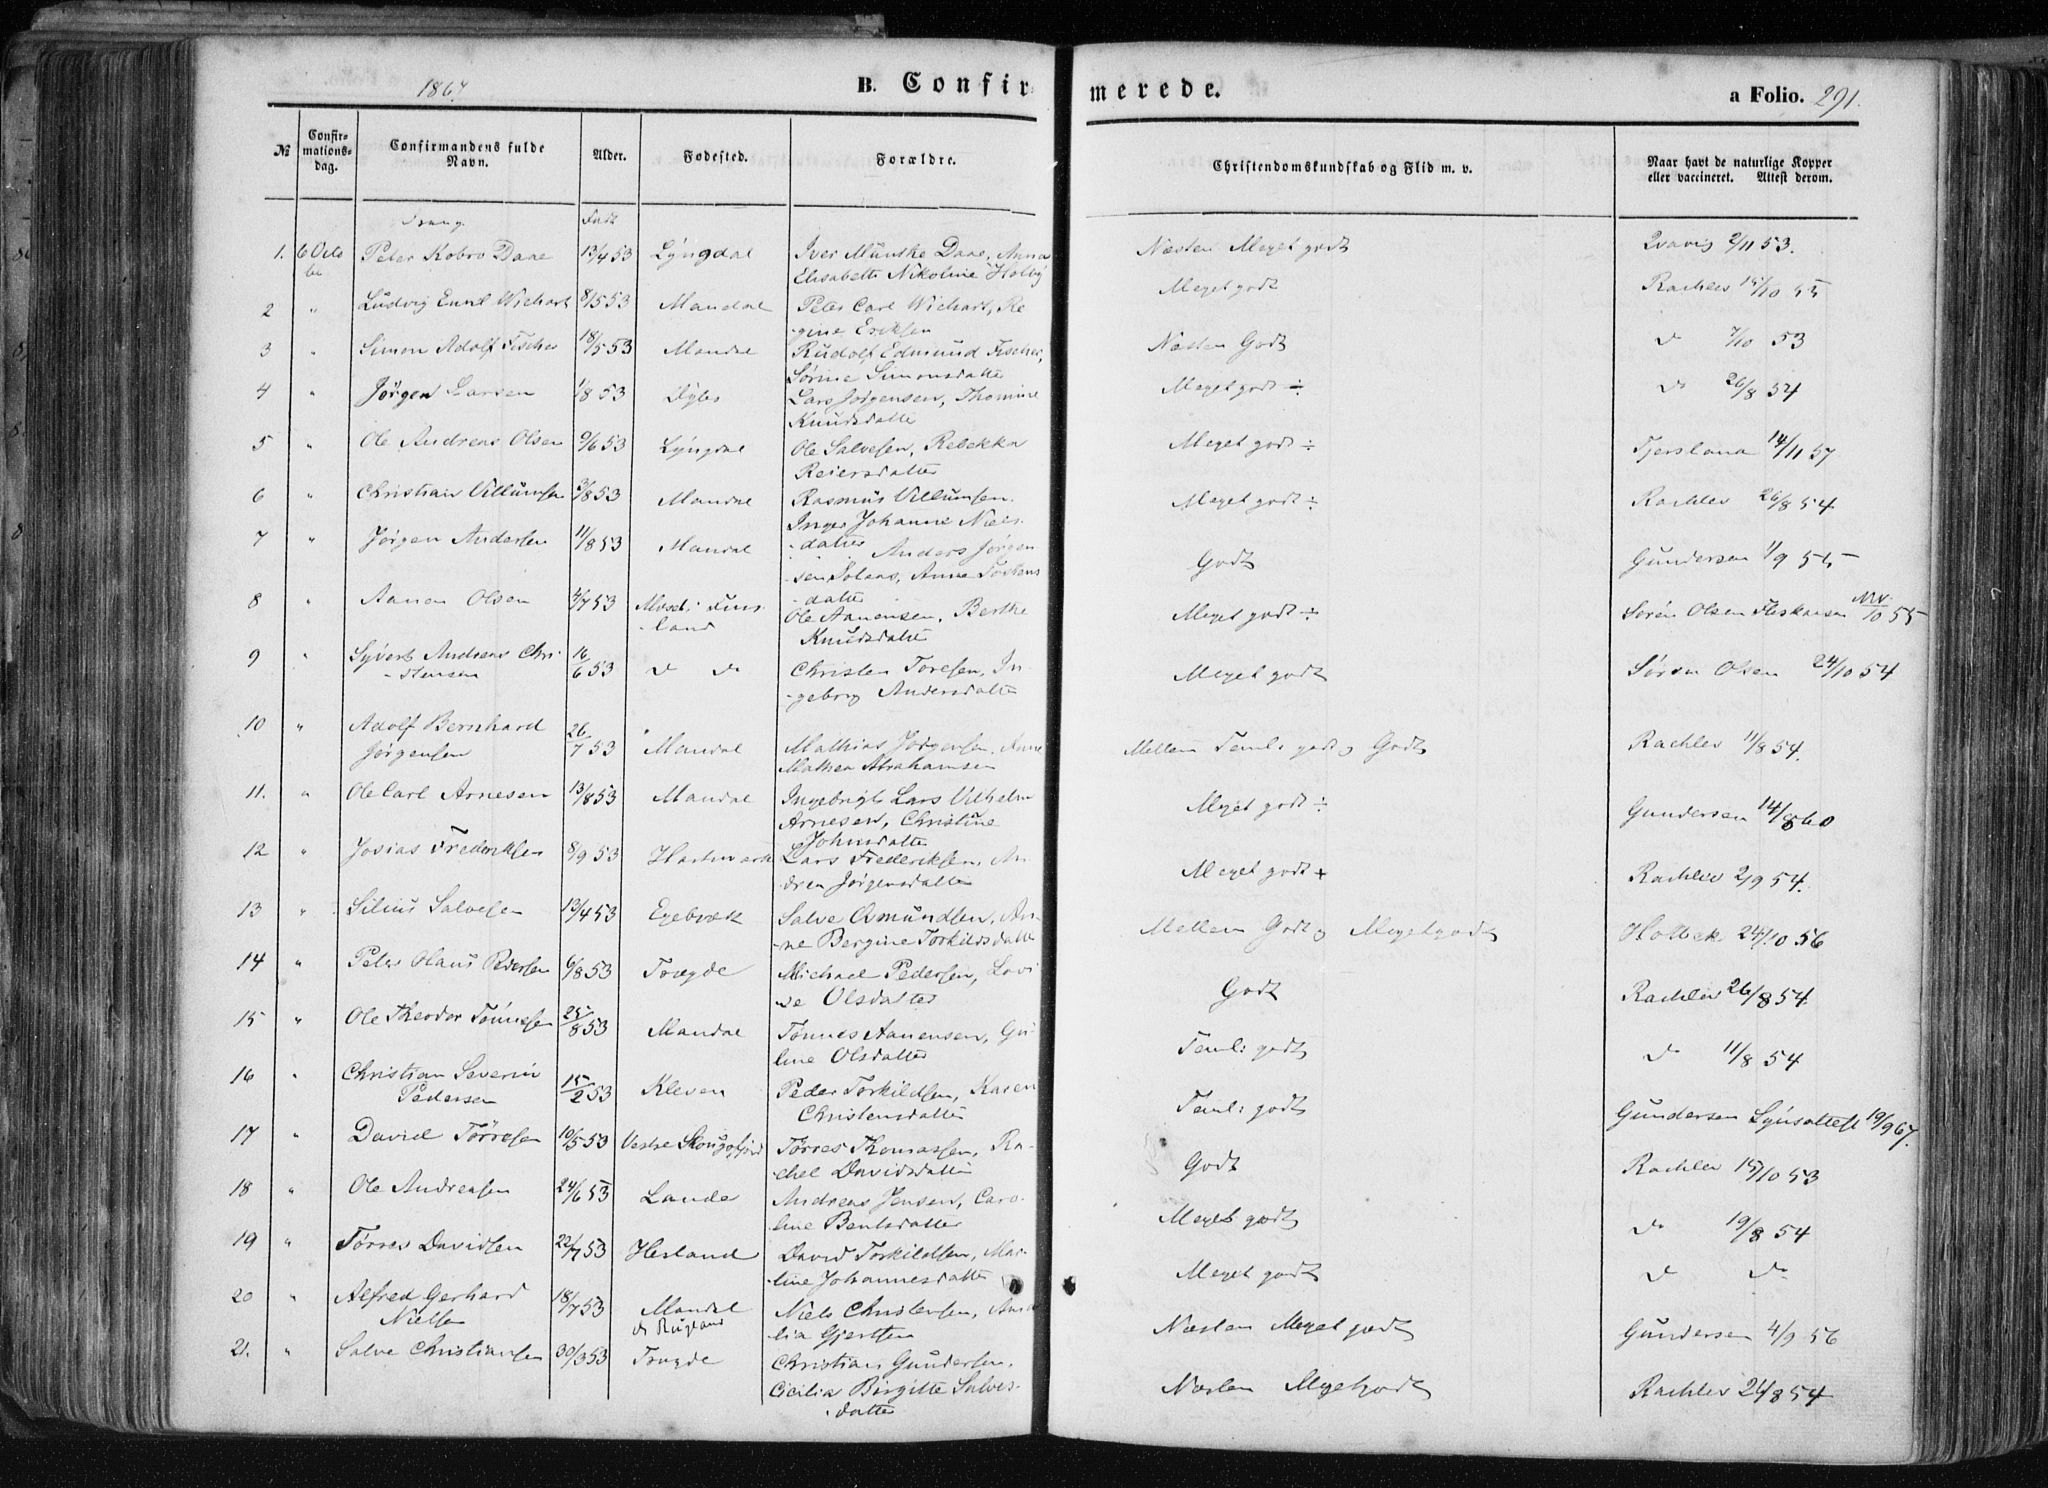 1867.
B. Confirmerede.
a Folio. 291.
№
Confirmationsdag.
Confirmandens fulde Navn.
Alder.
Fødested.
Forældre.
Christendomskundskab og Flid m. v.
Naar havt de naturlige Kopper eller vaccineret. Attest derom.
Dreng.
Født
1. 6 Octobr Peter Kobro Daae 13/4 53 Lyngdal Iver Munthe Daae, Anna Elisabeth Nikoline Holby Næsten Meget godt 2/11 53.
2 " Ludvig Emil Wichart 8/5 53 Mandal Peter Carl Wichart, Regine Eriksen Meget godt Rachlev 15/10 55
3 " Simon Adolf Fischer 18/5 53 Mandal Rudolf Edmund Fischer, Sørine Simonsdatter Næsten Godt do 7/10 53
4 " Jørgen Larsen 1/8 53 Dybo Lars Jørgensen, Thomine Knudsdatter Meget godt ÷ do 26/8 54
5 " Ole Andreas Olsen 9/6 53 Lyngdal Ole Salvesen, Rebekka Reiersdatter Meget godt ÷ Tjersland 14/11 57
6 " Christian Villumsen 3/8 53 Mandal Rasmus Villumsen. Inger Johanne Nielsdatter Meget godt ÷ Rachlev 26/8 54
7 " Jørgen Andersen 11/8 53 Mandal Anders Jørgensen Solaas, Anne Torkensdatter Godt Gundersen 1/9 55
8 " Aanon Olsen 4/7 53 Finsland Ole Aanensen, Berthe Knudsdatter Meget godt ÷ Søren Olsen 10 55
9 " Syvert Andreas Christensen 16/6 53 do do Christen Toresen, Ingeborg Andersdatter Meget godt Søren Olsen 24/10 54
10 " Adolf Bernhard Jørgensen 26/7 53 Mandal Mathias Jørgensen, Anne Mathea Abrahamsen Mellem Teml: godt og Godt Rachlev 11/8 54.
11. " Ole Carl Arnesen 13/8 53 Mandal Ingebrigt Lars Vilhelm Arnesen, Christine Johnsdatter Meget godt ÷ Gundersen 14/8 60
12 " Josias Frederiksen 8/9 53 Hartmark Lars Frederiksen, Andrea Jørgensdatter Meget godt + Rachlev 2/9 54.
13 " Silius Salvesen 13/4 53 Egebræk Salve Osmundsen, Anne Bergine Torkildsdatter Mellem Godt og Meget godt Holbek 24/10 56
14 " Peter Hans Pedersen 6/8 53 Trygde Michael Pedersen, Lovise Olsdatter Godt Rachlev 26/8 54.
15 " Ole Theodor Tønnesen 25/8 53 Mandal Tønnes Aanensen, Guline Olsdatter Teml: godt do 11/8 54
16 " Christian Severin Pedersen 15/2 53 Kleven Peder Torkildsen, Karen Christensdatter Teml: godt Gundersen Lynsattest 19/9 67.
17 " David Tørresen 10/5 53 Vestre Skougsfjord Tørres Thomassen, Rachel Davidsdatter Godt Rachlev 15/10 53
18 " Ole Andreasen 24/6 53 Lande Andreas Jensen, Caroline Bentsdatter Meget godt do 19/8 54
19 " Tørres Davidsen 22/7 53 Hesland David Torkildsen, Marline Johannesdatter Meget godt do do
20 " Alfred Gerhard Nielsen 18/7 53 Mandal Niels Christensen, Amalia Gjertsen Næsten Meget godt Gundersen 4/9 56
21. " Salve Christiansen 30/3 53 Trygde Christian Gundersen, Cicilia Birgitte Salvesdatter Næsten Meget godt Rachlev 24/8 54